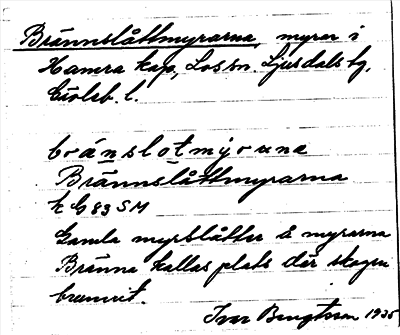 Brännslåttmyrarna, myrar i
Hamra kap., Los sn. Ljusdals tg,
Gävleb. l.
bränslotmýrune
Brännslåttmyrarna
k G 83 SM
Gamla myrslåtter å myrarna
Bränna kallas plats där skogen
brunnit.
Ivar Bengtsson 1935